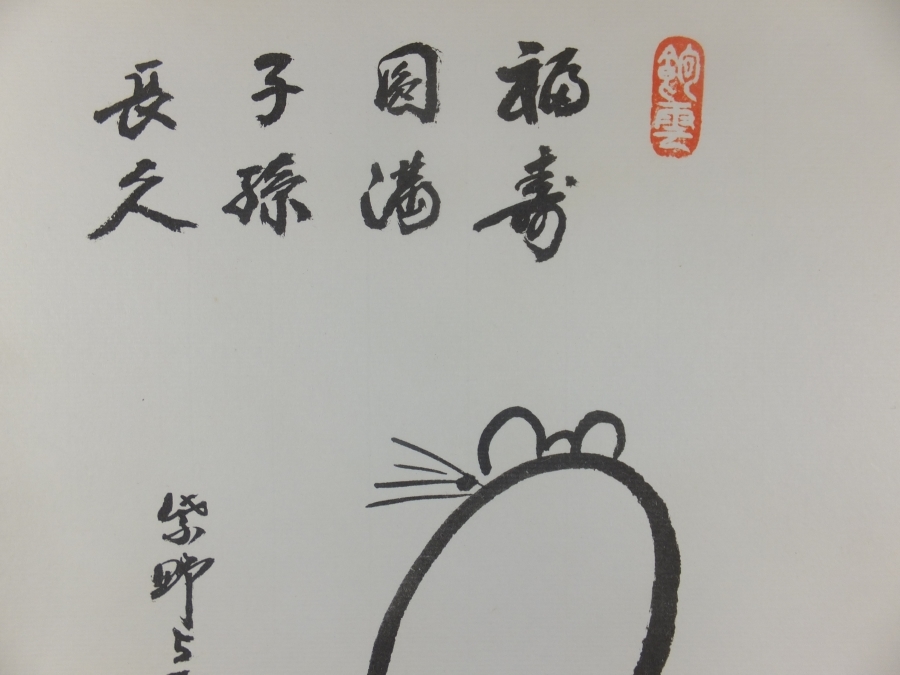 福寿
圓満
子孫
長久
紫野